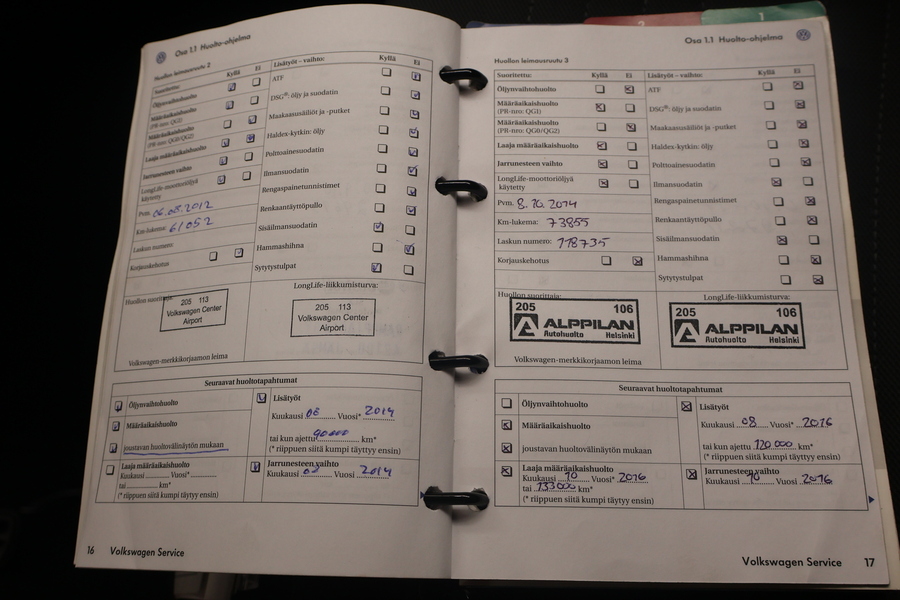 Osa 1.1 Huolto-ohjelma
Huollon leimausruutu 2
Suoritettu: Kyllä Ei
Öljynvaihtohuolto
Määräaikaishuolto
(PR-nro: QG1)
Määräaikaishuolto
(PR-nro: QG0/QG2)
Laaja määräaikaishuolto
Jarrunesteen vaihto
LongLife-moottoriöljyä
käytetty
Pvm. 06.08.2012
Km-lukema: 61052
Laskun numero:
Korjauskehotus
Lisätyöt – vaihto: Kyllä Ei
ATF
DSG®: öljy ja suodatin
Maakaasusäiliöt ja -putket
Haldex-kytkin: öljy
Polttoainesuodatin
Ilmansuodatin
Rengaspainetunnistimet
Renkaantäyttöpullo
Sisäilmansuodatin
Hammashihna
Sytytystulpat
Huollon suorittaja:
205 113
Volkswagen Center
Airport
LongLife-liikkumisturva:
205 113
Volkswagen Center
Airport
Volkswagen-merkkikorjaamon leima
Seuraavat huoltotapahtumat
Öljynvaihtohuolto
Määräaikaishuolto
joustavan huoltovälinäytön mukaan
Laaja määräaikaishuolto
Kuukausi Vuosi*
tai km*
(* riippuen siitä kumpi täyttyy ensin)
Lisätyöt
Kuukausi 08 Vuosi* 2014
tai kun ajettu 90000 km*
(* riippuen siitä kumpi täyttyy ensin)
Jarrunesteen vaihto
Kuukausi 08 Vuosi 2014
16 Volkswagen Service
Osa 1.1 Huolto-ohjelma
Huollon leimausruutu 3
Suoritettu: Kyllä Ei
Öljynvaihtohuolto
Määräaikaishuolto
(PR-nro: QG1)
Määräaikaishuolto
(PR-nro: QG0/QG2)
Laaja määräaikaishuolto
Jarrunesteen vaihto
LongLife-moottoriöljyä
käytetty
Pvm. 8.10.2014
Km-lukema: 73855
Laskun numero: 118735
Korjauskehotus
Lisätyöt – vaihto: Kyllä Ei
ATF
DSG®: öljy ja suodatin
Maakaasusäiliöt ja -putket
Haldex-kytkin: öljy
Polttoainesuodatin
Ilmansuodatin
Rengaspainetunnistimet
Renkaantäyttöpullo
Sisäilmansuodatin
Hammashihna
Sytytystulpat
Huollon suorittaja:
205 106
ALPPILAN
Autohuolto Helsinki
LongLife-liikkumisturva:
205 106
ALPPILAN
Autohuolto Helsinki
Volkswagen-merkkikorjaamon leima
Seuraavat huoltotapahtumat
Öljynvaihtohuolto
Määräaikaishuolto
joustavan huoltovälinäytön mukaan
Laaja määräaikaishuolto
Kuukausi 10 Vuosi* 2016
tai 133000 km*
(* riippuen siitä kumpi täyttyy ensin)
Lisätyöt
Kuukausi 08 Vuosi* 2016
tai kun ajettu 120 000 km*
(* riippuen siitä kumpi täyttyy ensin)
Jarrunesteen vaihto
Kuukausi 10 Vuosi 2016
Volkswagen Service 17
1